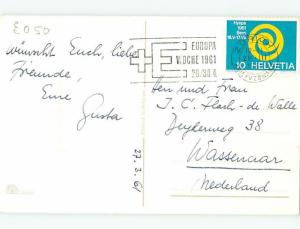 E050
wünscht Euch, liebe
Freunde,
Eure
Gusta
27.3.61
+E
EUROPA
WOCHE 1961
Hyspa
1961
Bern
18.V-17.VII
10 HELVETIA
Herr und Frau
J. C. Flach-de Walle
Deylerweg 38
Wassenaar
Nederland